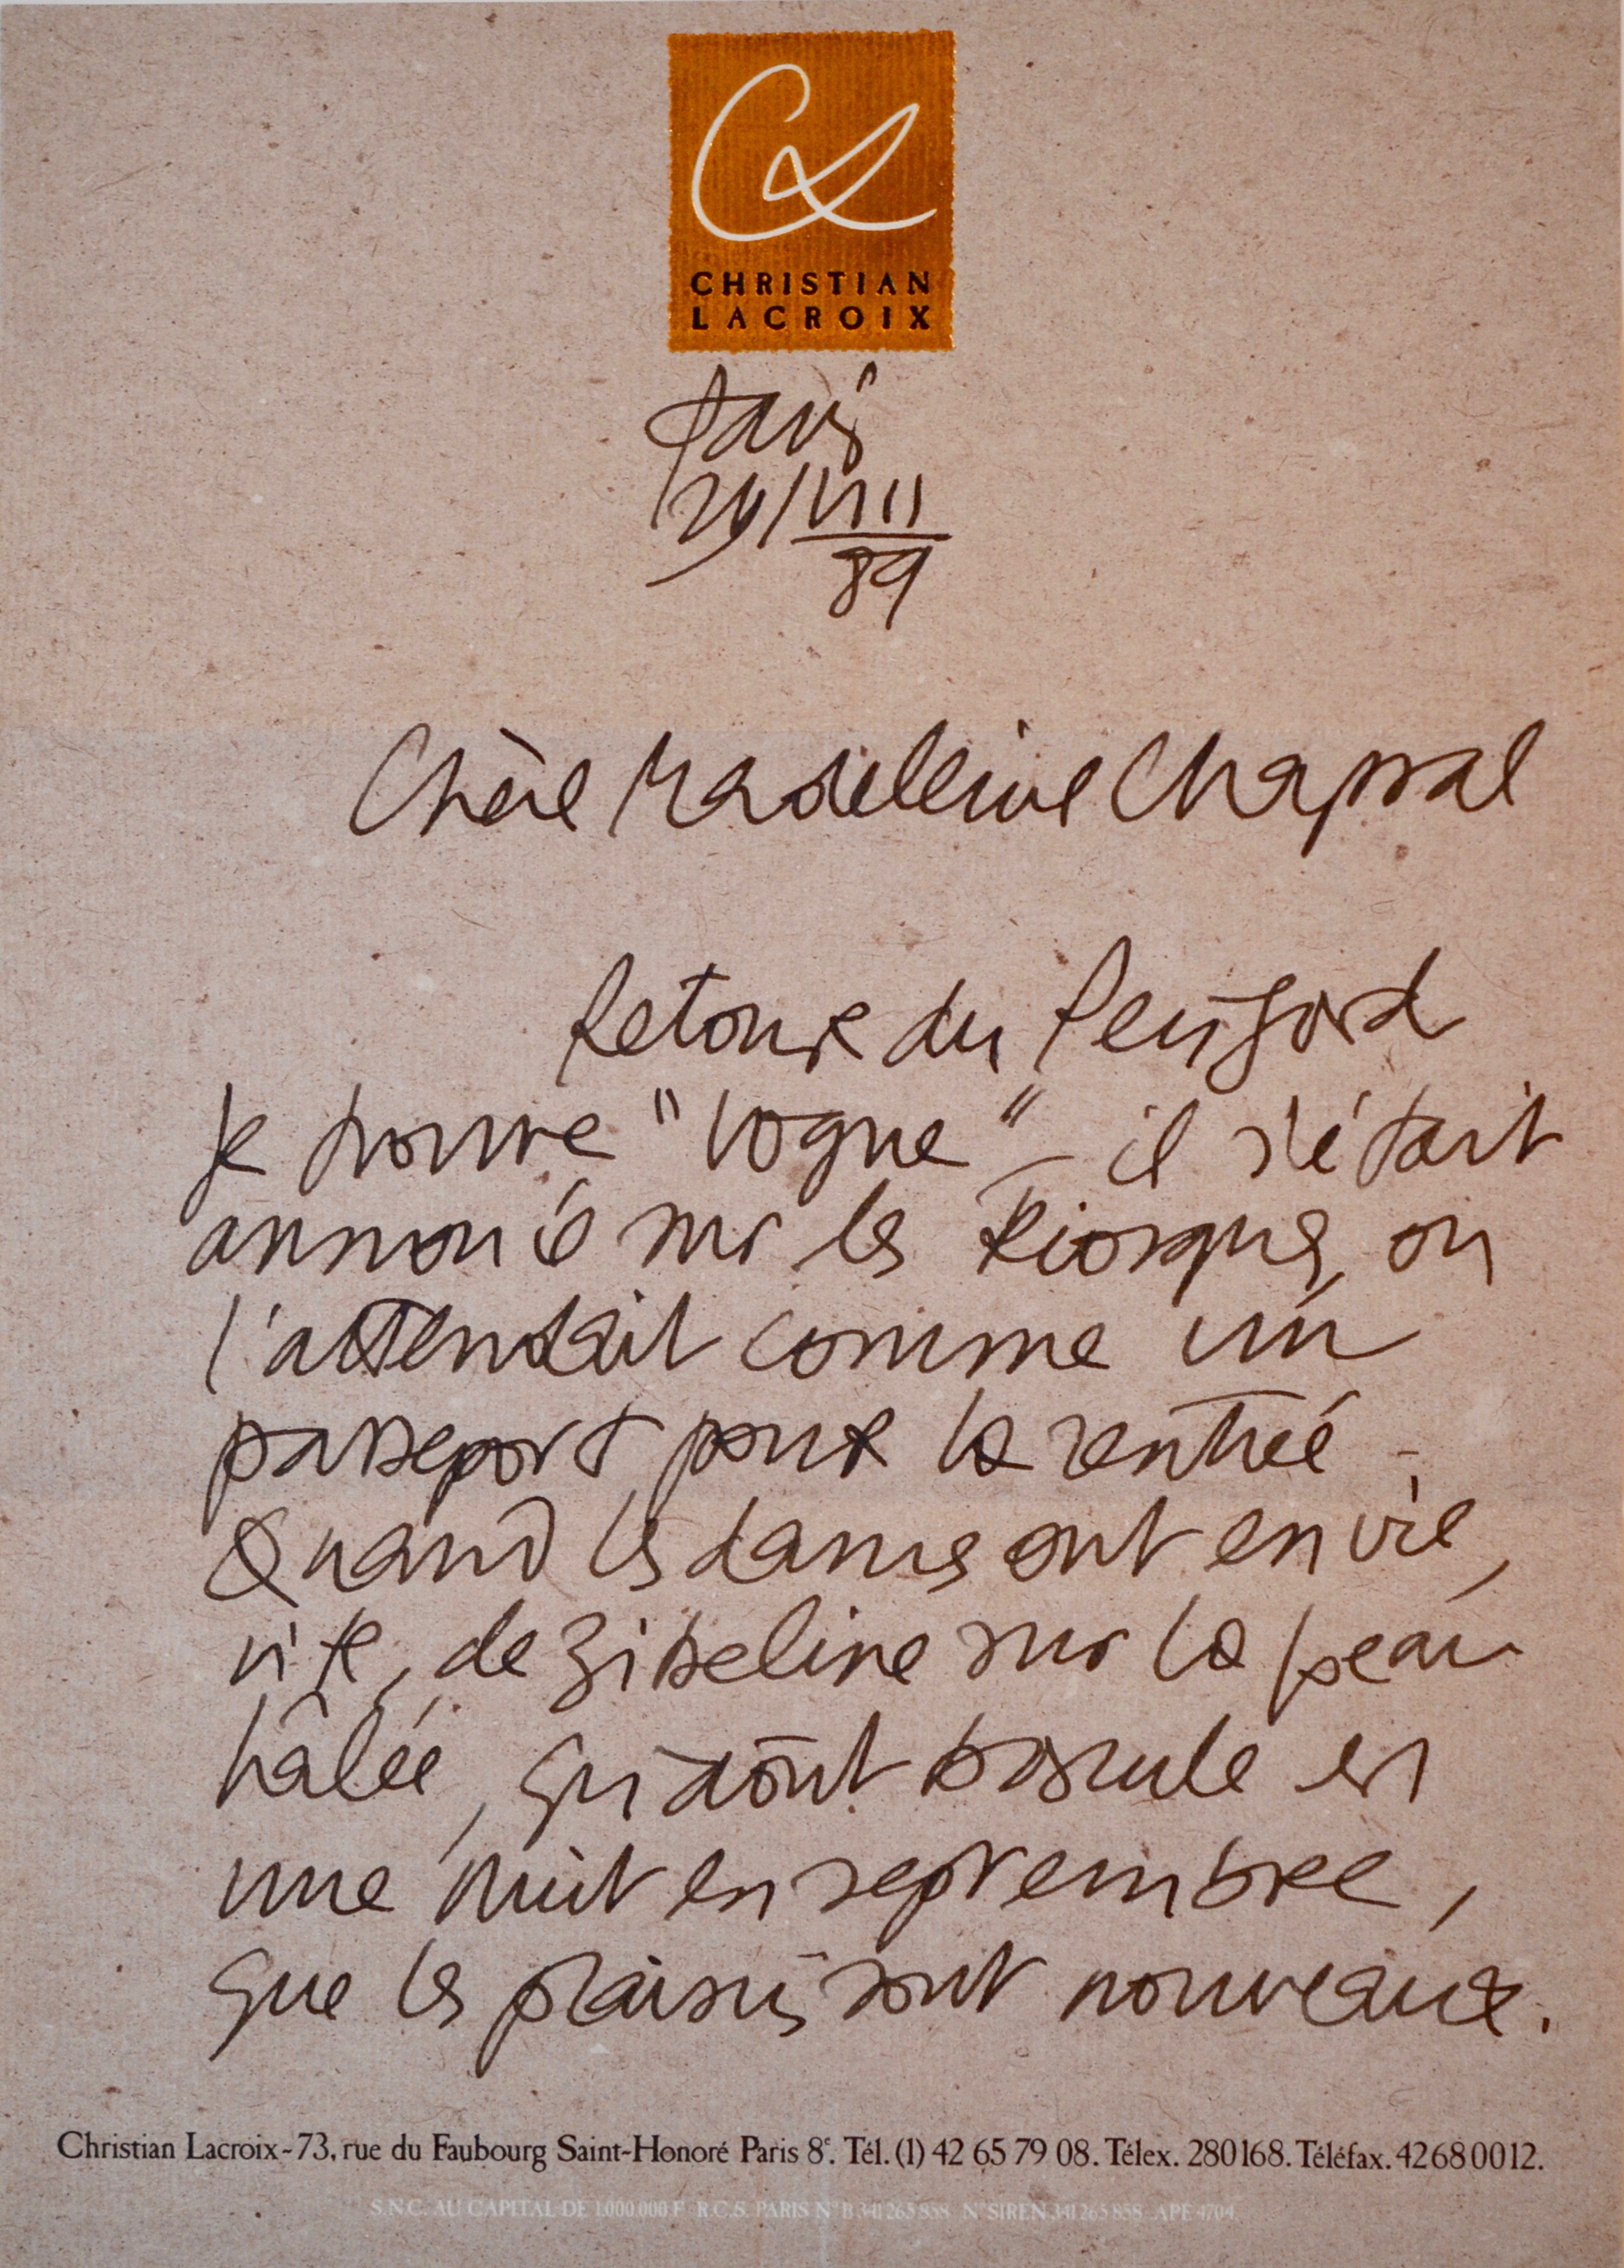 CHRISTIAN
LACROIX
Paris
29/VIII
89
Chère Madeleine Chapsal
Retour du Périgord
je trouve "Vogue" - il s'était
annoncé sur les kiosques, on
l'attendait comme un
passeport pour la rentrée -
Quand les dames ont envie,
vite, de zibeline sur la peau
hâlée, qu'août bascule en
une nuit en septembre,
que les plaisirs sont nouveaux.
Christian Lacroix-73, rue du Faubourg Saint-Honoré Paris 8e. Tél. (1) 42 65 79 08. Télex. 280168. Téléfax. 42680012.
S.N.C. AU CAPITAL DE 1.000.000 F R.C.S. PARIS N° B 341 265 858 N° SIREN 341 265 858 APE 4704